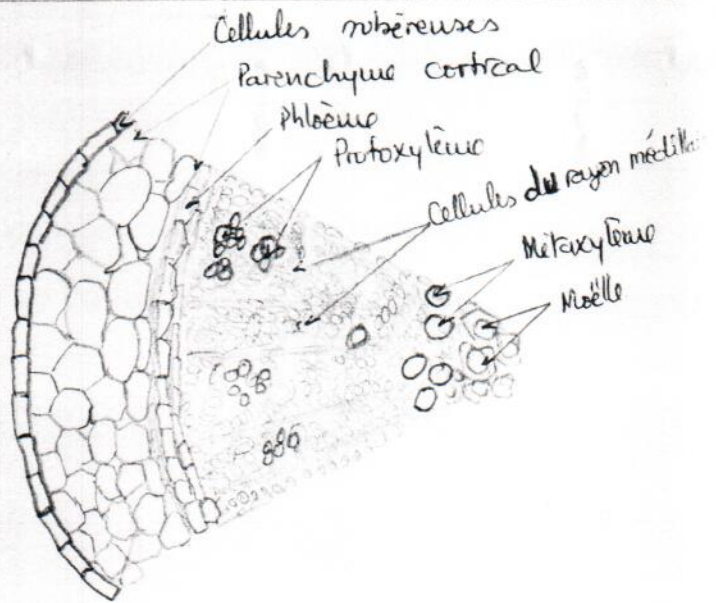 Cellules subéreuses
Parenchyme cortical
Phloème
Protoxylème
Cellules du rayon médullai
Métaxylème
Moëlle